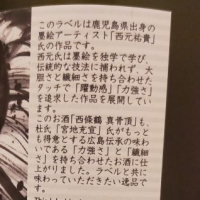 このラベルは鹿児島県出身の
墨絵アーティスト「西元祐貴」
氏の作品です。
西元氏は墨絵を独学で学び、
伝統的な技法に捕われず、大
胆さと繊細さを持ち合わせた
タッチで「躍動感」「力強さ」
を追求した作品を展開してい
ます。
このお酒「西條鶴 真骨頂」も、
杜氏「宮地充宜」氏がもっと
も得意とする広島伝承の味わ
いである「力強さ」と「繊細
さ」を持ち合わせたお酒に仕上
がりました。ラベルと共に
味わっていただきたい逸品で
す。